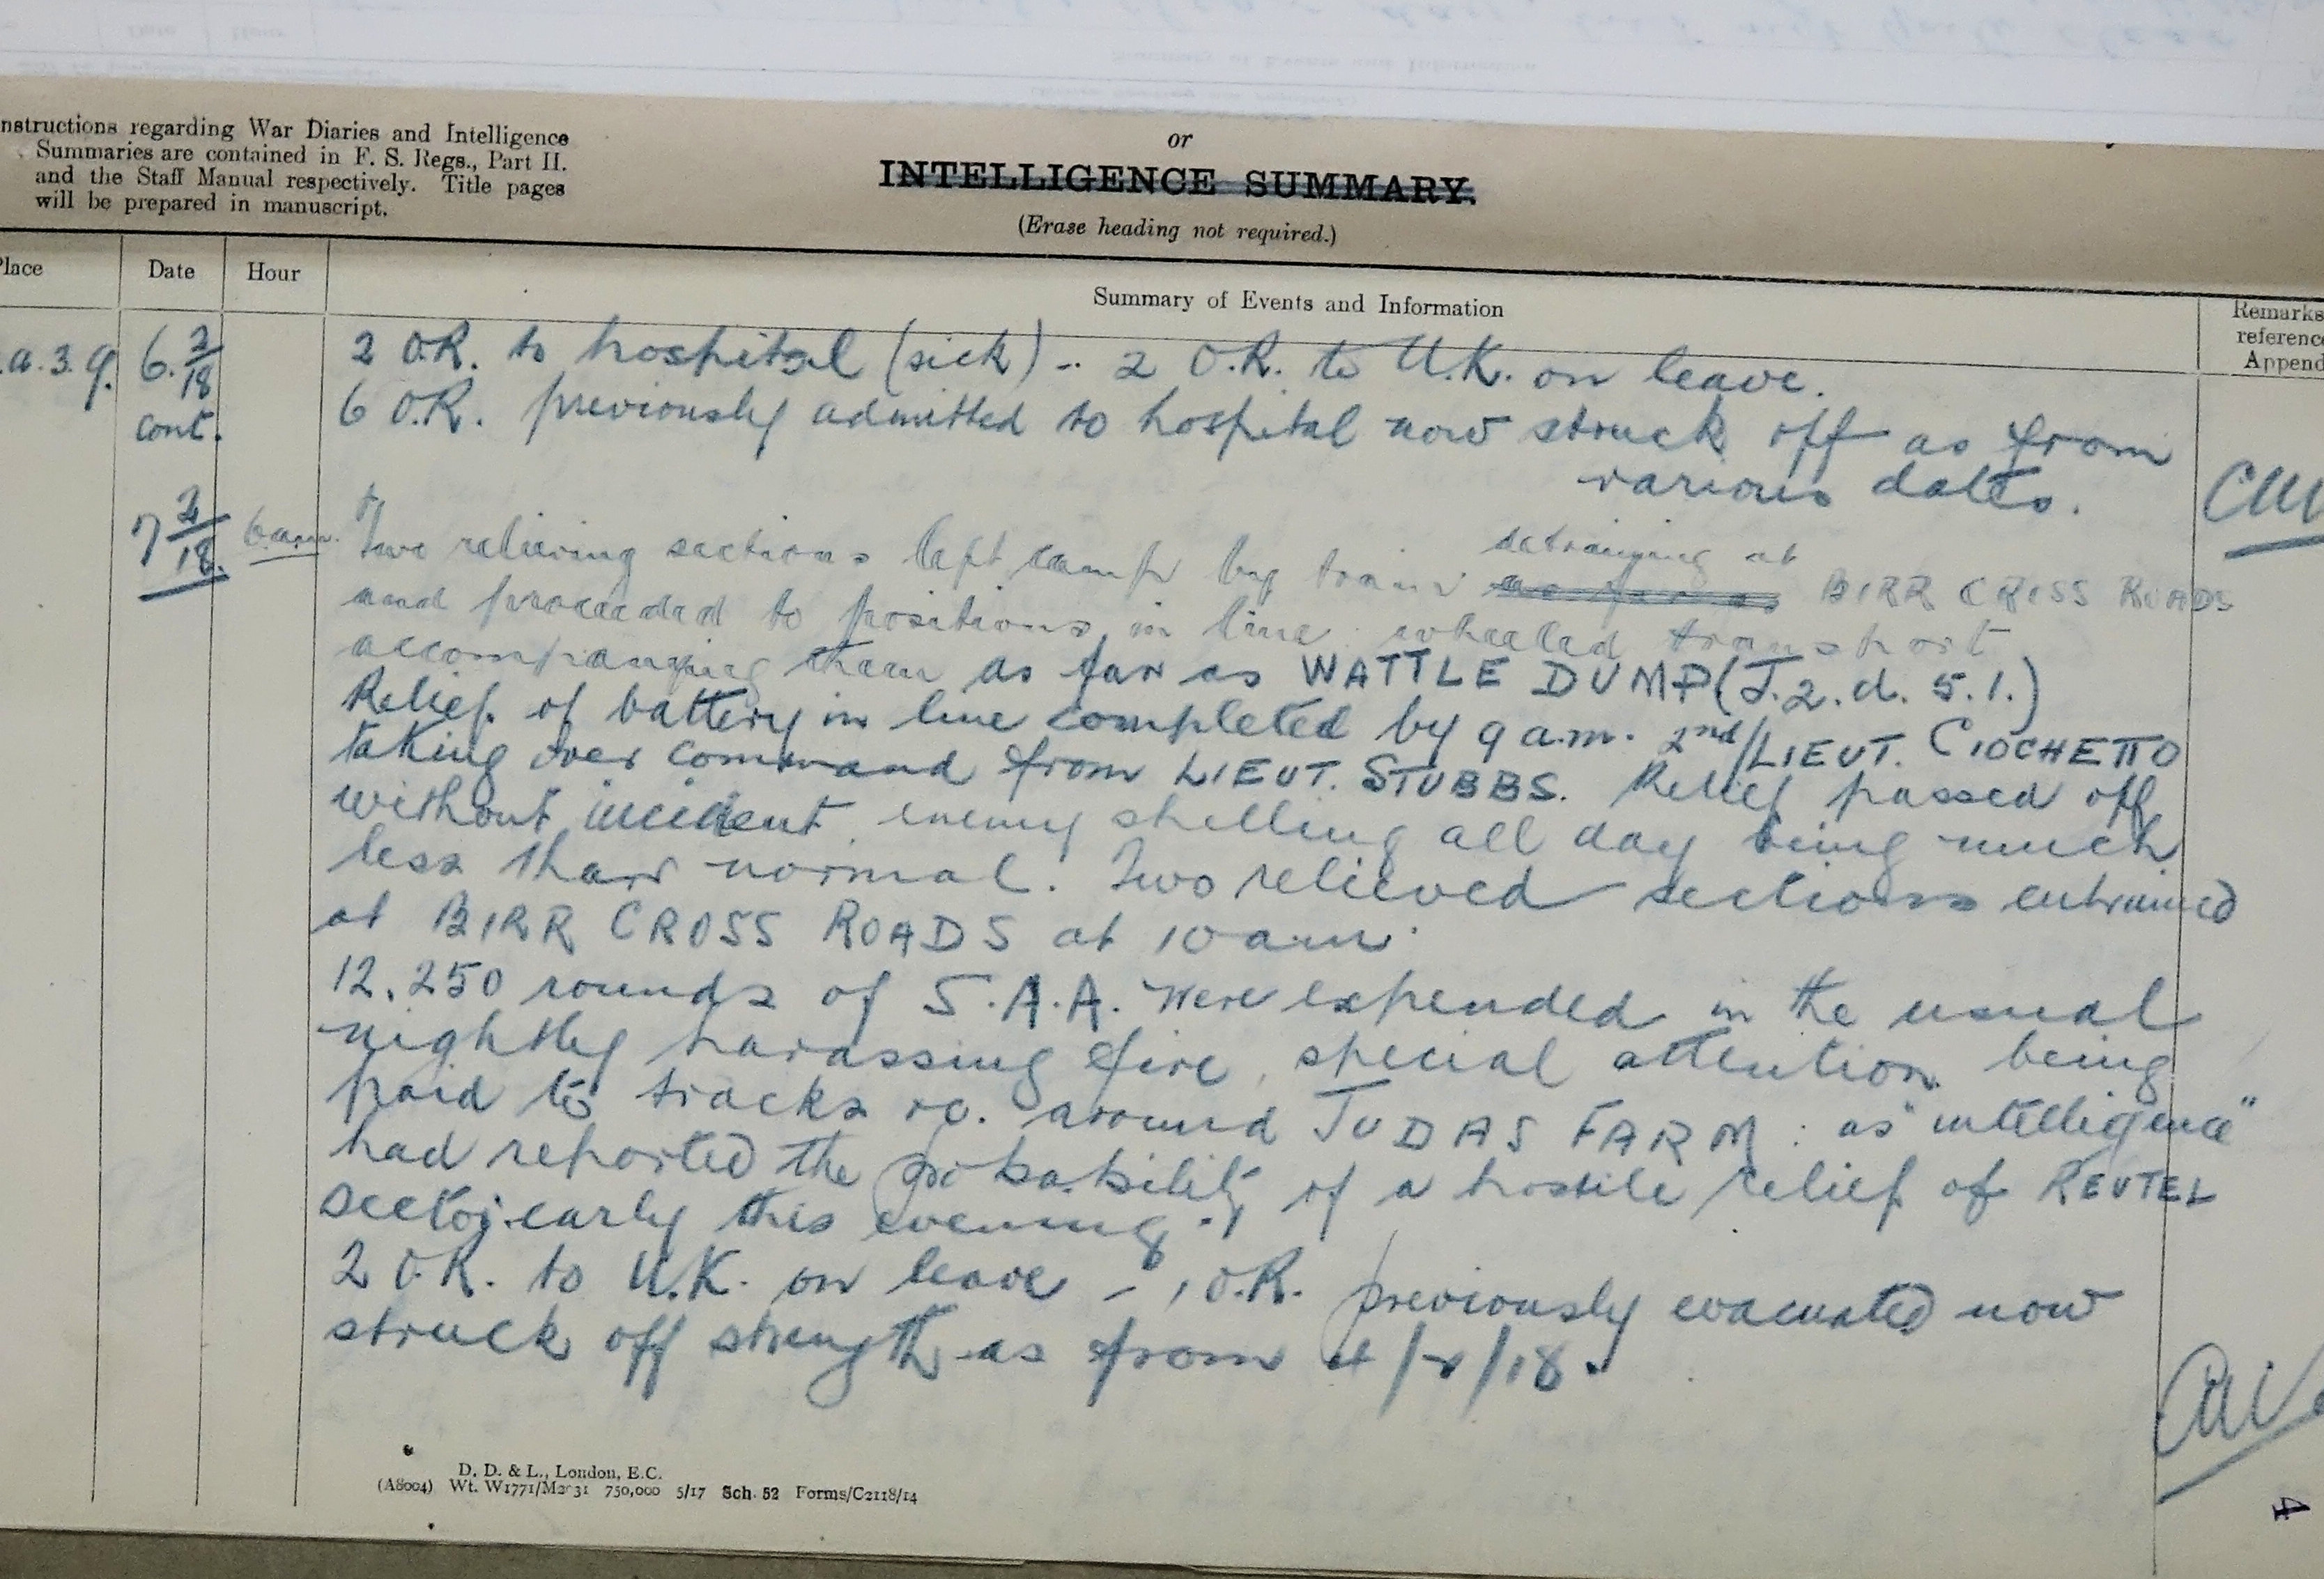 nstructions regarding War Diaries and Intelligence
Summaries are contained in F. S. Regs., Part II.
and the Staff Manual respectively. Title pages
will be prepared in manuscript.
or
INTELLIGENCE SUMMARY.
(Erase heading not required.)
Place
Date
Hour
Summary of Events and Information
Remarks
reference
Append
.a.3.9. 6.2/18 2 O.R. to hospital (sick) -- 2 O.R. to U.K. on leave.
cont. 6 O.R. previously admitted to hospital now struck off as from
various dates.
7 2/18. 6 a.m. Two relieving sections left camp by train as far as detraining at BIRR CROSS ROADS
and proceeded to positions in line: wheeled transport
accompanying them as far as WATTLE DUMP (J.2.d.5.1.)
Relief of battery in line completed by 9 a.m. 2nd/LIEUT. CIOCHETTO
taking over command from LIEUT. STUBBS. Relief passed off
without incident, enemy shelling all day being much
less than normal. Two relieved sections entrained
at BIRR CROSS ROADS at 10 a.m.
12.250 rounds of S.A.A. were expended in the usual
nightly harassing fire, special attention being
paid to tracks around JUDAS FARM: as "intelligence"
had reported the probability of a hostile relief of REUTEL
sector early this evening.
2 O.R. to U.K. on leave - 1 O.R. previously evacuated now
struck off strength as from 4/2/18.
D. D. & L., London, E.C.
(A8004) Wt. W1771/M2031 750,000 5/17 Sch. 52 Forms/C2118/14
4